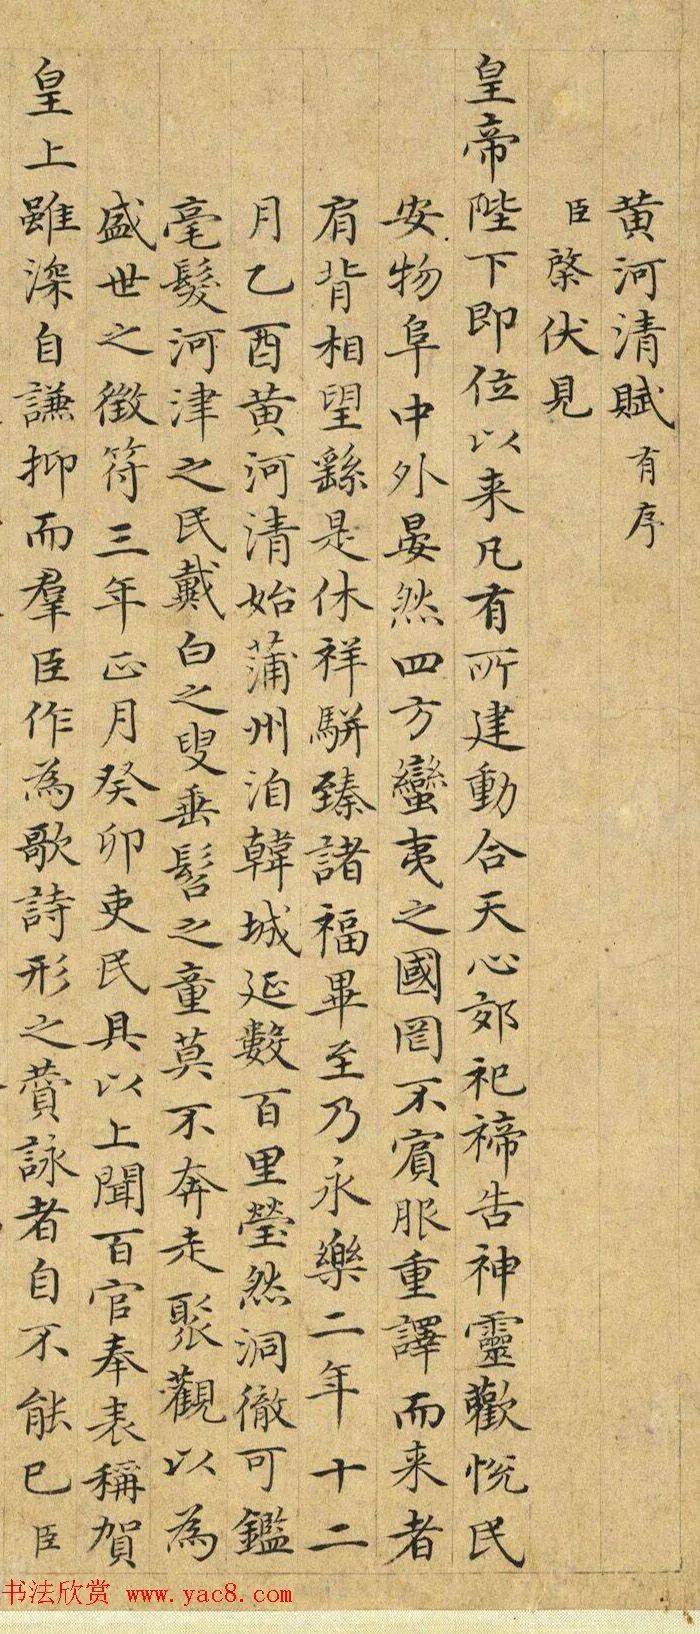 黄河清賦有序
臣棨伏見
皇帝陛下即位以来凡有所建動合天心郊祀禘告神靈歡悅民
安物阜中外晏然四方蠻夷之國罔不賓服重譯而来者
肩背相望繇是休祥駢臻諸福畢至乃永樂二年十二
月乙酉黄河清始蒲州洎韓城延數百里瑩然洞徹可鑑
毫髮河津之民戴白之叟垂髫之童莫不奔走聚觀以為
盛世之徵符三年正月癸卯吏民具以上聞百官奉表稱賀
皇上雖深自謙抑而羣臣作為歌詩形之贊詠者自不能已臣
书法欣赏 www.yac8.com